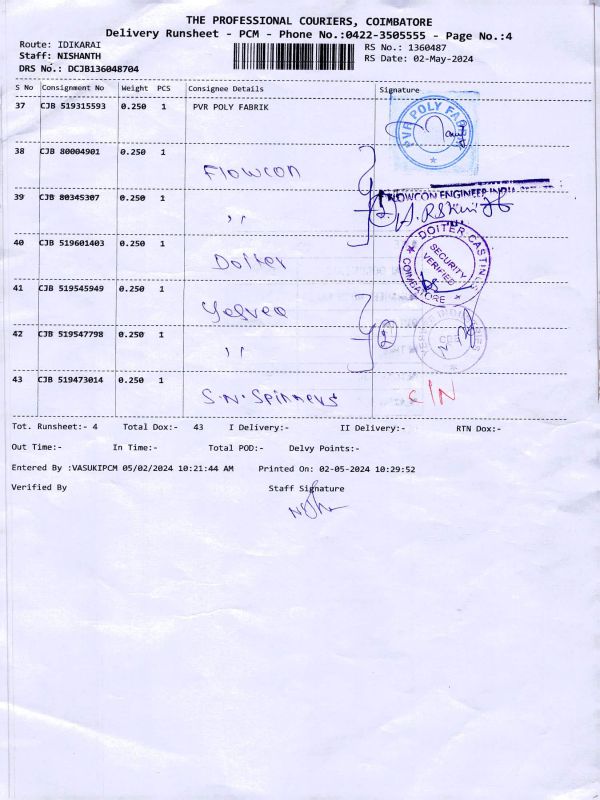 THE PROFESSIONAL COURIERS, COIMBATORE
Delivery Runsheet - PCM - Phone No.:0422-3505555 - Page No.:4
Route: IDIKARAI
RS No.: 1360487
Staff: NISHANTH
RS Date: 02-May-2024
DRS No.: DCJB136048704
S No Consignment No Weight PCS Consignee Details Signature
37 CJB 519315593 0.250 1 PVR POLY FABRIK
PVR POLY FABRIK
38 CJB 80004901 0.250 1 Flowcon
39 CJB 80345307 0.250 1 ,,
FLOWCON ENGINEER INDIA
40 CJB 519601403 0.250 1 Doiter
DOITER CASTING
SECURITY
VERIFIED
COIMBATORE
41 CJB 519545949 0.250 1
42 CJB 519547798 0.250 1 ,,
2
43 CJB 519473014 0.250 1 S.N. Spinners C/N
Tot. Runsheet:- 4 Total Dox:- 43 I Delivery:- II Delivery:- RTN Dox:-
Out Time:- In Time:- Total POD:- Delvy Points:-
Entered By :VASUKIPCM 05/02/2024 10:21:44 AM Printed On: 02-05-2024 10:29:52
Verified By Staff Signature